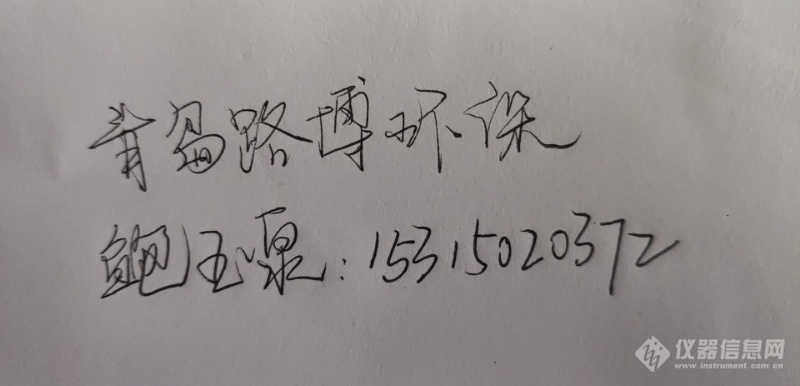 青岛路博环保
鲍玉泉:15315020372
仪器信息网
www.instrument.com.cn